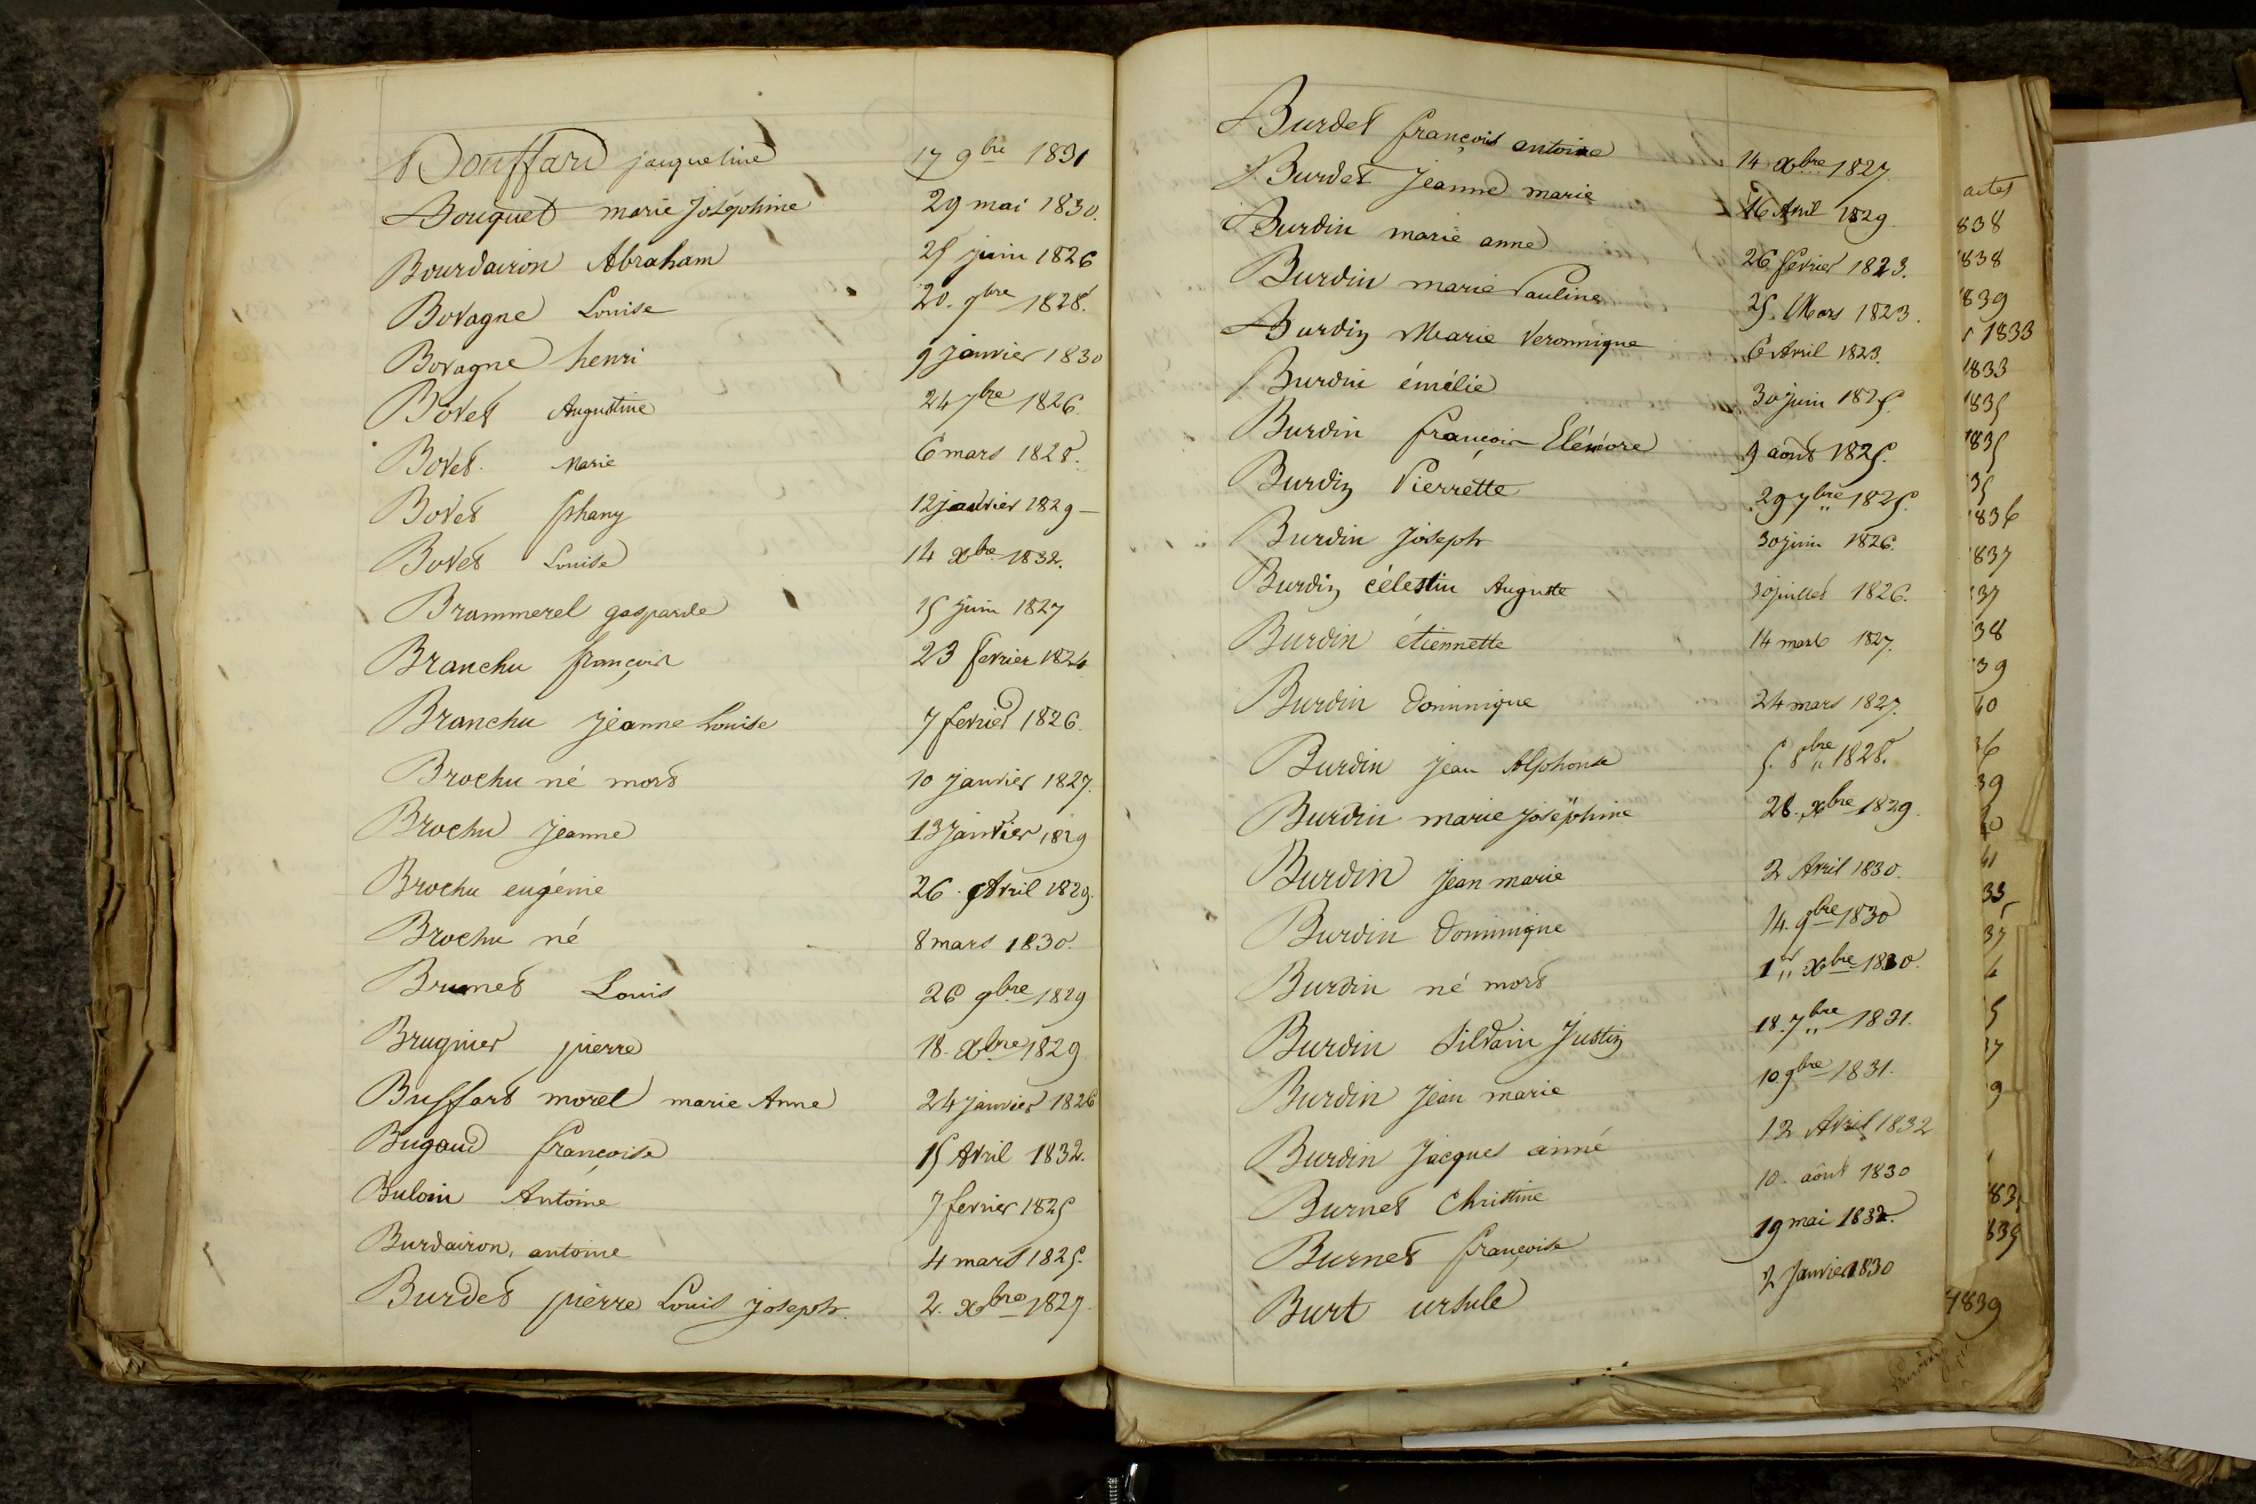 Bouffard jacqueline 17 9bre 1831
Bouquet marie Joséphine 29 mai 1830.
Bourdairon Abraham 25 juin 1826
Bovagne Louise 20. 9bre 1828.
Bovagne henri 9 janvier 1830
Bovet Augustine 24 7bre 1826.
Bovet. Marie 6 mars 1828.
Bovet phany 12 janvier 1829
Bovet Louise 14 xbre 1832.
Brammerel gasparde 15 juin 1827
Branchu françois 23 fevrier 1824
Branchu jeanne Louise 7 fevrier 1826.
Brochu né mort 10 janvier 1827.
Brochu jeanne 13 janvier 1829
Brochu eugénie 26. Avril 1829.
Brochu né 8 mars 1830.
Brunet Louis 26 9bre 1829
Brugnier pierre 18. xbre 1829
Buffart morel marie Anne 24 janvier 1826
Bugaud françoise 15 Avril 1832.
Buloin Antoine 7 fevrier 1825
Burdairon, antoine 4 mars 1825.
Burdet pierre Louis joseph. 2. xbre 1827
Burdet françois antoine 14 xbre 1827.
Burdet Jeanne marie 16 Avril 1829.
Burdin marie anne 26 fevrier 1823.
Burdin marie Pauline 25. Mars 1823.
Burdin Marie Veronnique 6 Avril 1823.
Burdin émélie 30 juin 1825.
Burdin françois Elénore 9 août 1825.
Burdin Pierrétte 29 7bre 1825.
Burdin Joseph 30 juin 1826.
Burdin célestin Auguste 30 juillet 1826.
Burdin étiennette 14 mars 1827.
Burdin Dominique 24 mars 1827.
Burdin jean Alphonse 5. 8bre 1828.
Burdin marie joséphine 28. xbre 1829.
Burdin jean marie 2 Avril 1830.
Burdin Dominique 14. 9bre 1830
Burdin né mort 1er xbre 1830.
Burdin Silvain Justin 18. 7bre 1831.
Burdin Jean marie 10 9bre 1831.
Burdin Jacques aimé 12 Avril 1832
Burnet Christine 10. août 1830
Burnet françoise 19 mai 1832.
Burt ursule 2 Janvier 1830
actes
838
838
839
1833
1833
1835
1835
35
1836
837
37
38
39
40
36
39
40
41
35
37
839
1839